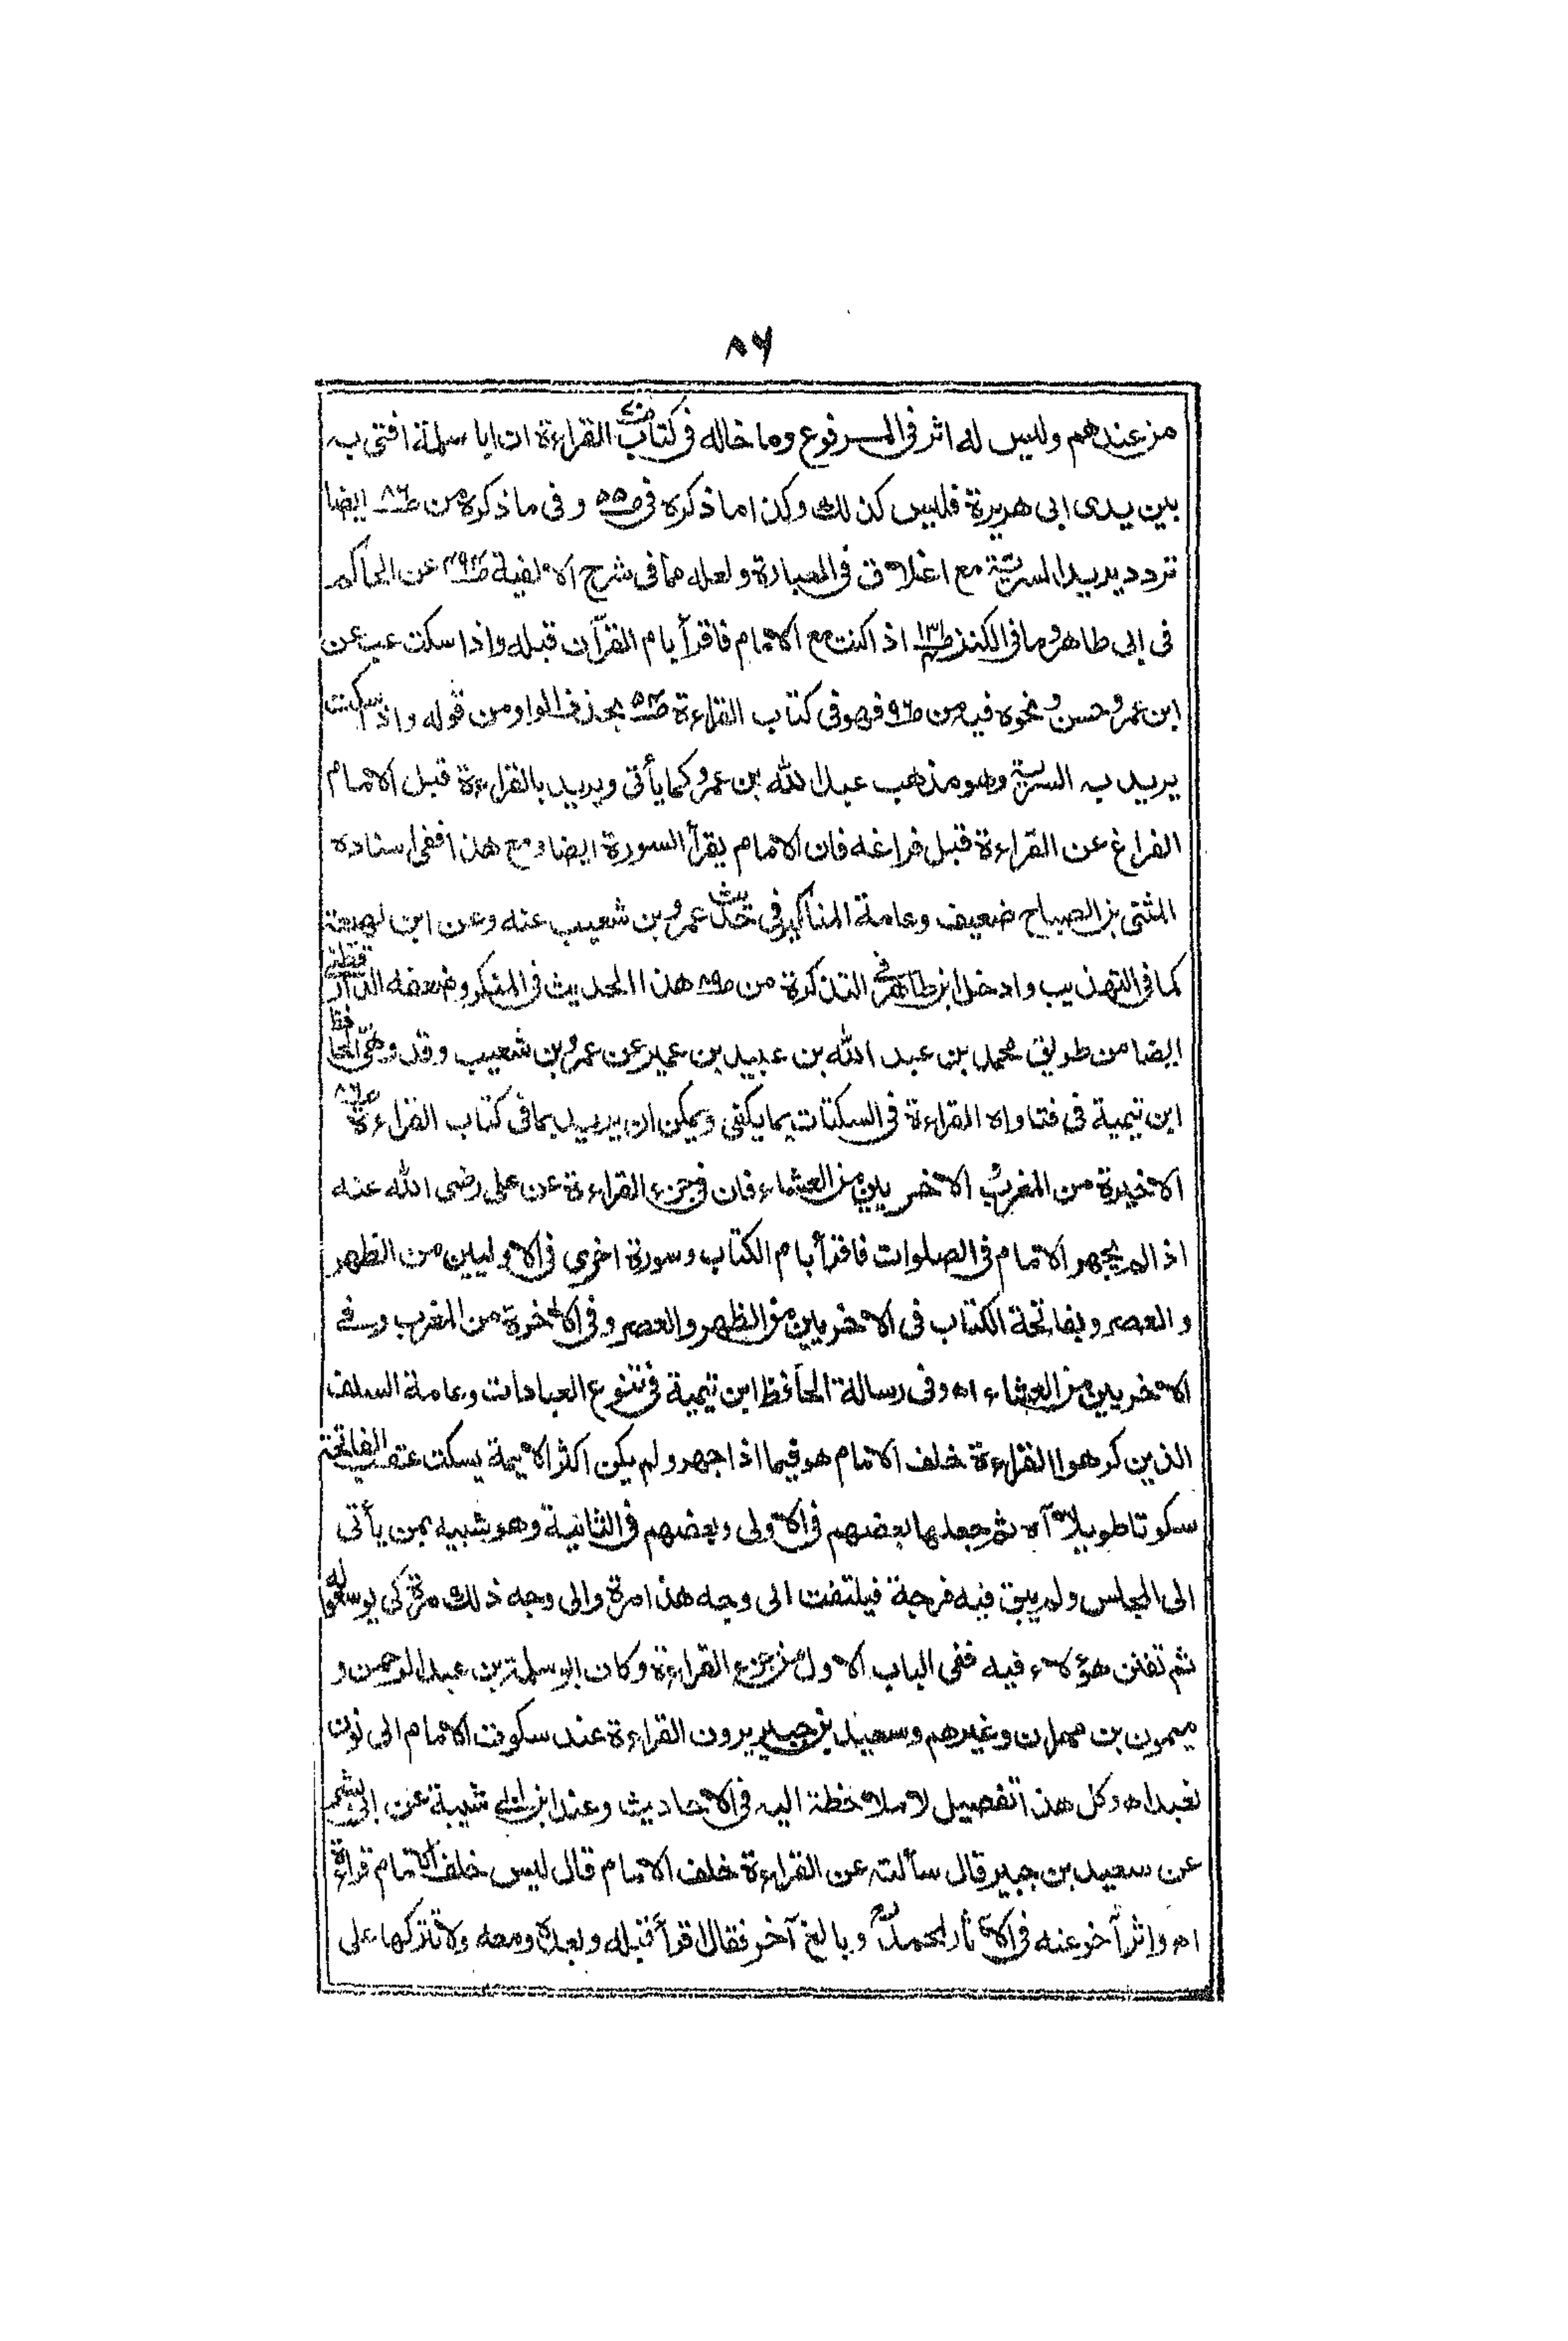 ٨٦
من عندهم وليس له اثر فى المرفوع وما خاله فى كتاب القراءة ان ابا سلمة افتى به
بين يدى ابى هريرة فليس كذلك وكذا ما ذكره فى ص٥٥ وفى ما ذكره من ص٨٦ ايضا
تردد يريد السرية مع اغلاق فى العبارة ولعله مما فى شرح الالفية عن الحاكم
فى ابى طاهر وما فى الكنز اذا كنت مع الامام فاقرأ بام القرآن قبله واذا سكت عب عن
ابن عمرو حسن ونحوه فيه من ص٩٦ فهو فى كتاب القراءة ص٥٣ بحذف الواو من قوله واذا سكت
يريد به السرية وهو مذهب عبد الله بن عمرو كما يأتى ويريد بالقراءة قبل الامام
الفراغ عن القراءة قبل فراغه فان الامام يقرأ السورة ايضا ومع هذا ففى اسناده
المثنى بن الصباح ضعيف وعامة المناكير فى حديث عمرو بن شعيب عنه وعن ابن لهيعة
كما فى التهذيب وادخل ابن طاهر فى التذكرة من ص٨٩ هذا الحديث فى المنكر وضعفه الدارقطنى
ايضا من طريق محمد بن عبد الله بن عبيد بن عمير عن عمرو بن شعيب وقد وهى الحافظ
ابن تيمية فى فتاواه القراءة فى السكتات بما يكفى ويمكن ان يريد بما فى كتاب القراءة ص٨٦
الاخيرة من المغرب والاخريين من العشاء فان فى جزء القراءة عن على رضى الله عنه
اذا لم يجهر الامام فى الصلوات فاقرأ بام الكتاب وسورة اخرى فى الاوليين من الظهر
والعصر وبفاتحة الكتاب فى الاخريين من الظهر والعصر وفى الآخرة من المغرب وفى
الاخريين من العشاء اه وفى رسالة الحافظ ابن تيمية فى تنوع العبادات وعامة السلف
الذين كرهوا القراءة خلف الامام هو فيما اذا جهر ولم يكن اكثر الائمة يسكت عقب الفاتحة
سكوتا طويلا اه ثم جعلها بعضهم فى الاولى وبعضهم فى الثانية وهو شبيه بمن يأتى
الى المجلس ولم يبق فيه فرجة فيلتفت الى وجه هذا مرة والى وجه ذلك مرة كى يوسعوا له
ثم تفنن هؤلاء فيه ففى الباب الاول من جزء القراءة وكان ابو سلمة بن عبد الرحمن و
ميمون بن مهران وغيرهم وسعيد بن جبير يرون القراءة عند سكوت الامام الى نون
نعبد اه وكل هذا تفصيل لا ملاحظة اليه فى الاحاديث وعند ابن ابى شيبة عن ابى بشر
عن سعيد بن جبير قال سألته عن القراءة خلف الامام قال ليس خلف الامام قراءة
اه واثر آخر عنه فى الآثار لمحمد وبالغ آخر فقال اقرأ قبله وبعده ومعه ولا تتركها على